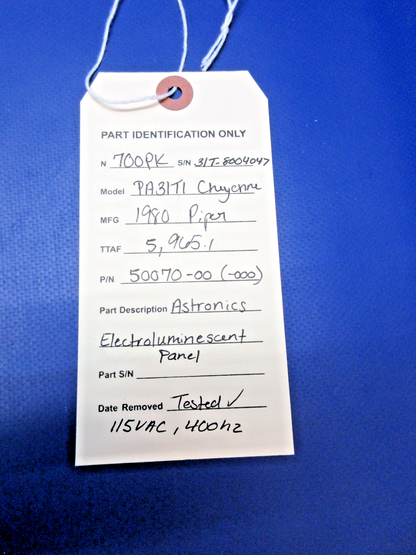 PART IDENTIFICATION ONLY
N 700PK S/N 31T-8004047
Model PA31T1 Cheyenne
MFG 1980 Piper
TTAF 5,965.1
P/N 50070-00 (-000)
Part Description Astronics
Electroluminescent
Panel
Part S/N
Date Removed Tested ✓
115VAC, 400hz